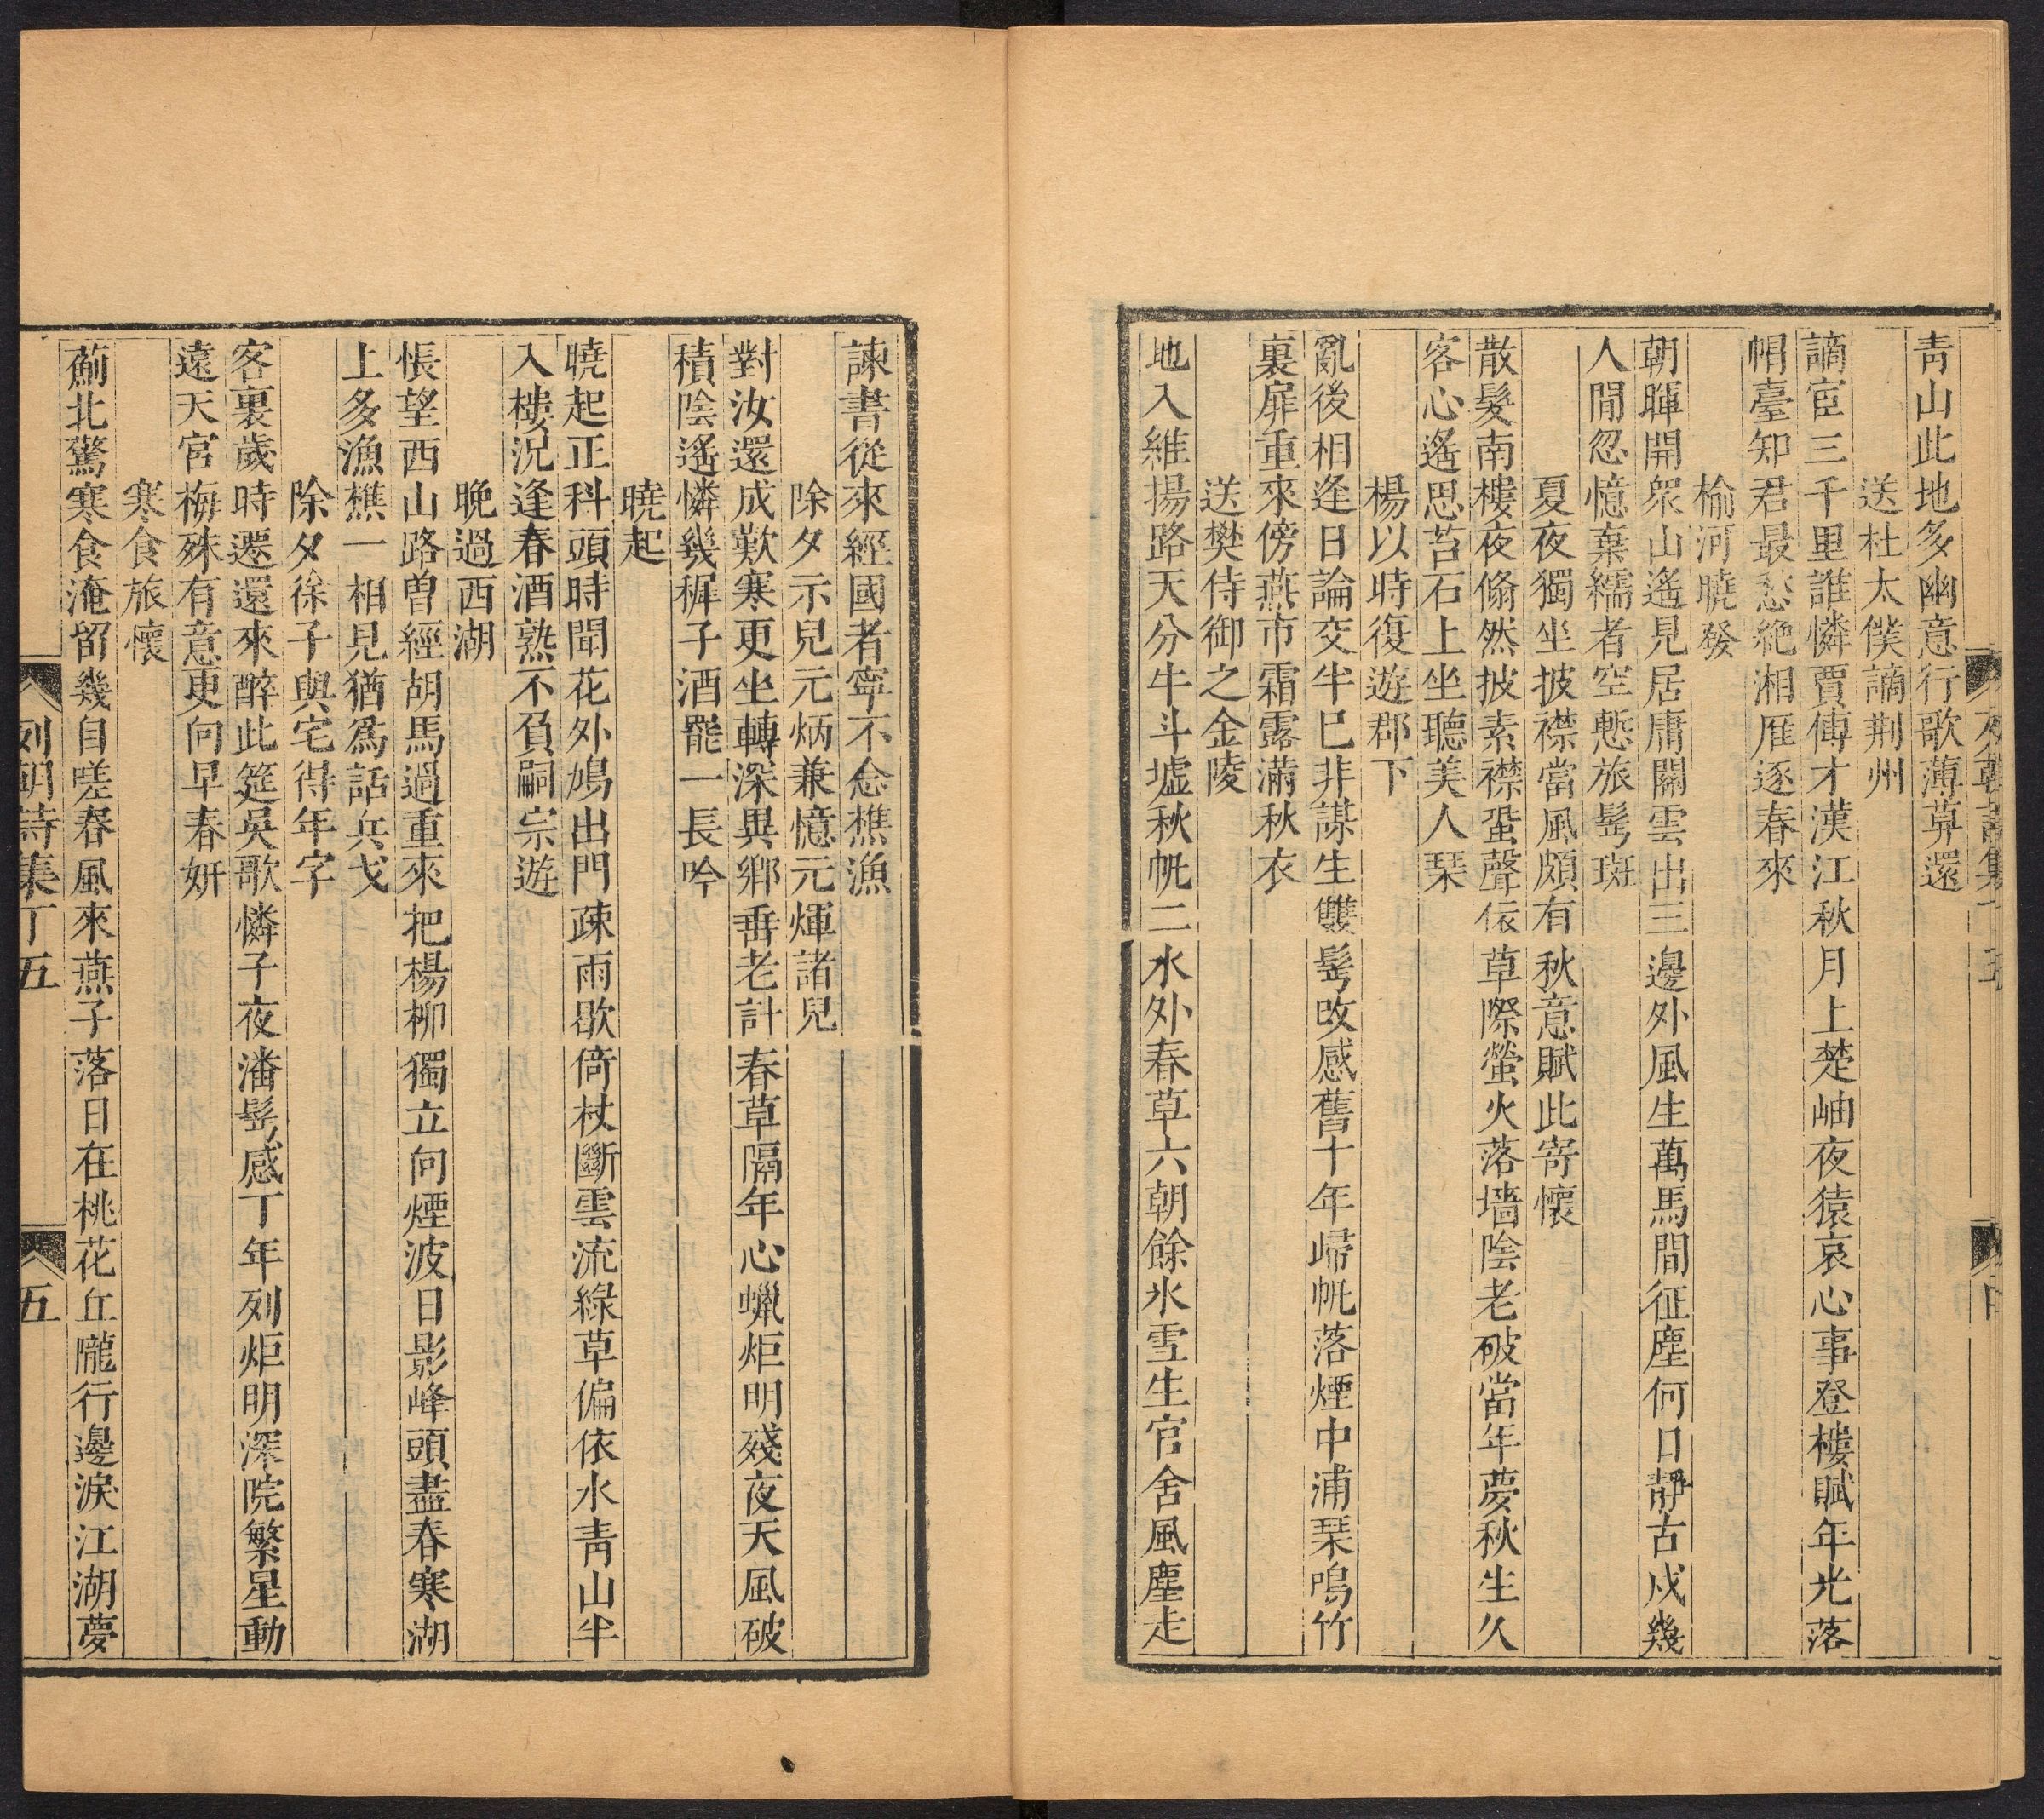 青山此地多幽意行歌薄暮還
送杜太僕謫荆州
謫宦三千里誰憐賈傅才漢江秋月上楚岫夜猿哀心事登樓賦年光落
帽臺知君最愁絶湘雁逐春來
榆河曉發
朝暉開衆山遙見居庸關雲出三邊外風生萬馬間征塵何日靜古戍幾
人閒忽憶棄繻者空慙旅髩斑
夏夜獨坐披襟當風頗有秋意賦此寄懷
散髮南樓夜翛然披素襟蛩聲依草際螢火落墻陰老破當年夢秋生久
客心遙思苔石上坐聽美人琹
楊以時復遊郡下
亂後相逢日論交半已非謀生雙髩改感舊十年歸帆落煙中浦琹鳴竹
裏扉重來傍燕市霜露滿秋衣
送樊侍御之金陵
地入維揚路天分牛斗墟秋帆二水外春草六朝餘氷雪生官舍風塵走
諫書從來經國者寧不念樵漁
除夕示兒元炳兼憶元煇諸兒
對汝還成歎寒更坐轉深異鄉垂老計春草隔年心蠟炬明殘夜天風破
積陰遙憐幾穉子酒罷一長吟
曉起
曉起正科頭時聞花外鳩出門疎雨歇倚杖斷雲流綠草偏依水青山半
入樓況逢春酒熟不負嗣宗遊
晚過西湖
悵望西山路曾經胡馬過重來把楊柳獨立向煙波日影峰頭盡春寒湖
上多漁樵一相見猶爲話兵戈
除夕徐子與宅得年字
客裏歲時遷還來醉此筵吳歌憐子夜潘髩感丁年列炬明深院繁星動
遠天宮梅殊有意更向早春妍
寒食旅懷
薊北驚寒食淹留幾自嗟春風來燕子落日在桃花丘隴行邊淚江湖夢
列朝詩集丁五
五